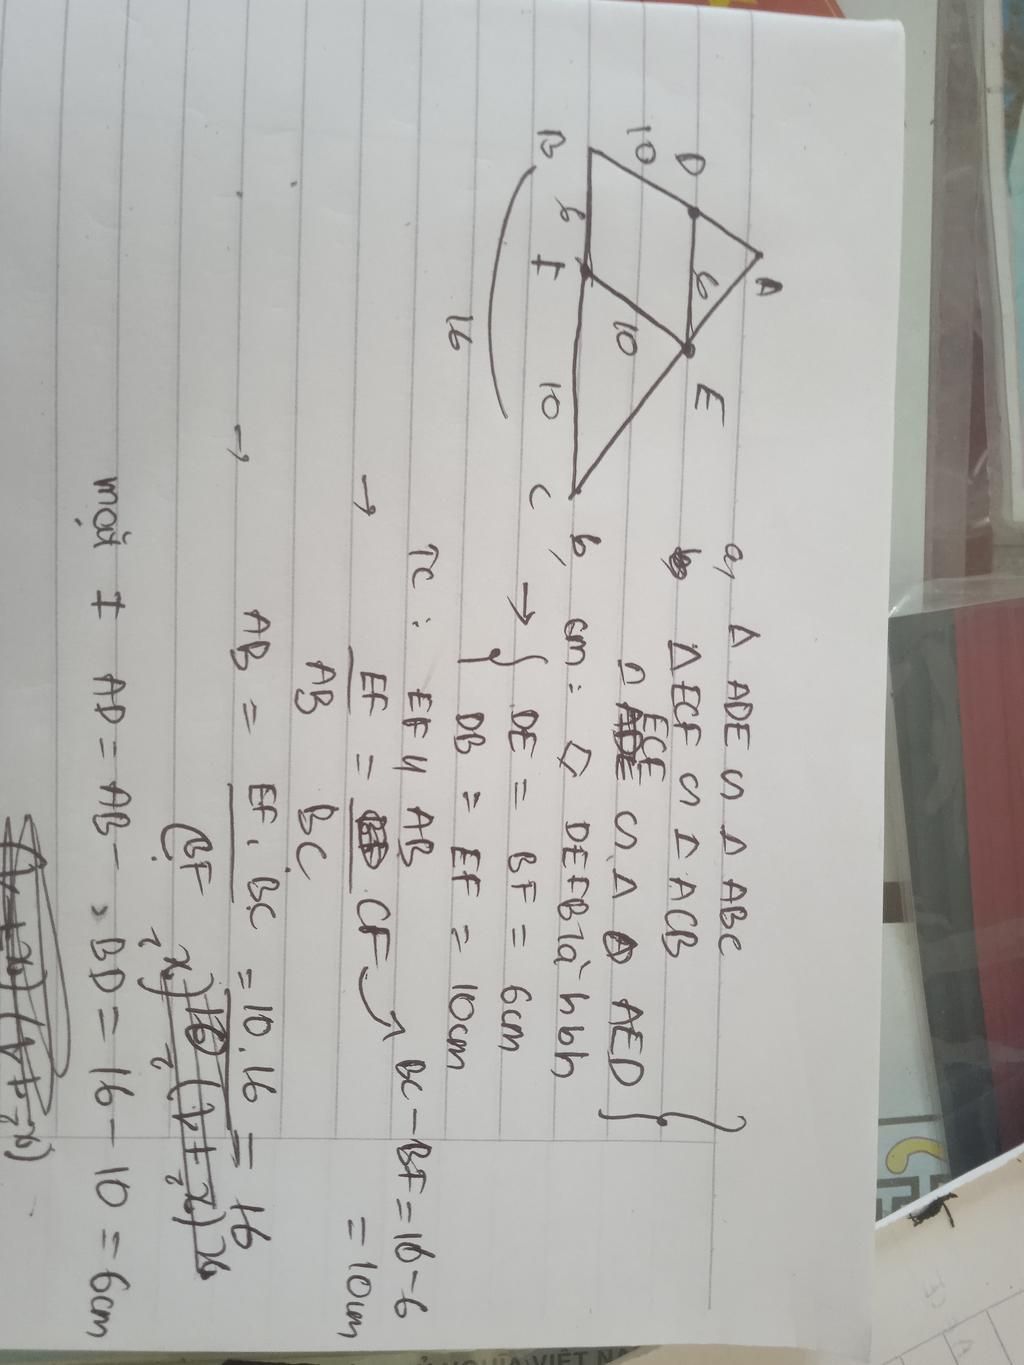 A
D
10
6
E
10
B
6
F
10
C
16
a, Δ ADE ∽ Δ ABC
Δ ECF ∽ Δ ACB
Δ ECF ∽ Δ AED
b, cm: ▱ DEFB là hbh
→ { DE = BF = 6cm
DB = EF = 10cm
TC: EF // AB
→ EF/AB = CF/BC → BC - BF = 16 - 6
= 10cm
→ AB = EF.BC/CF = 10.16/10 = 16
mặt ≠ AD = AB - BD = 16 - 10 = 6cm
NGHĨA VIỆT NA